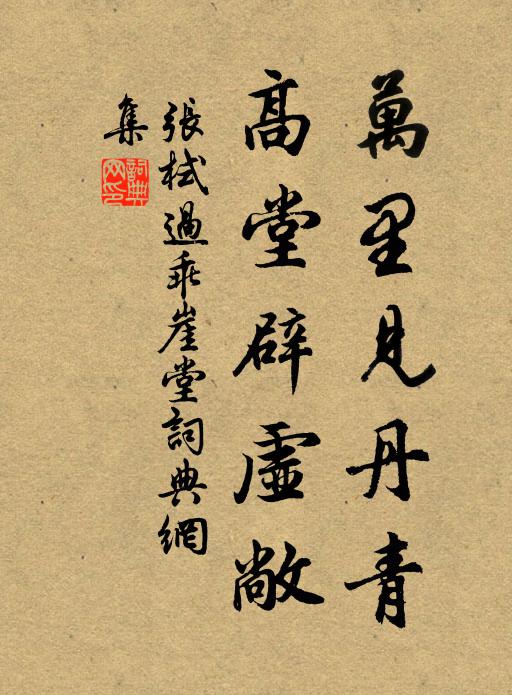 萬里見丹青
高堂辟虛敞
張栻過乖崖堂詞典網
集
詞典
网印